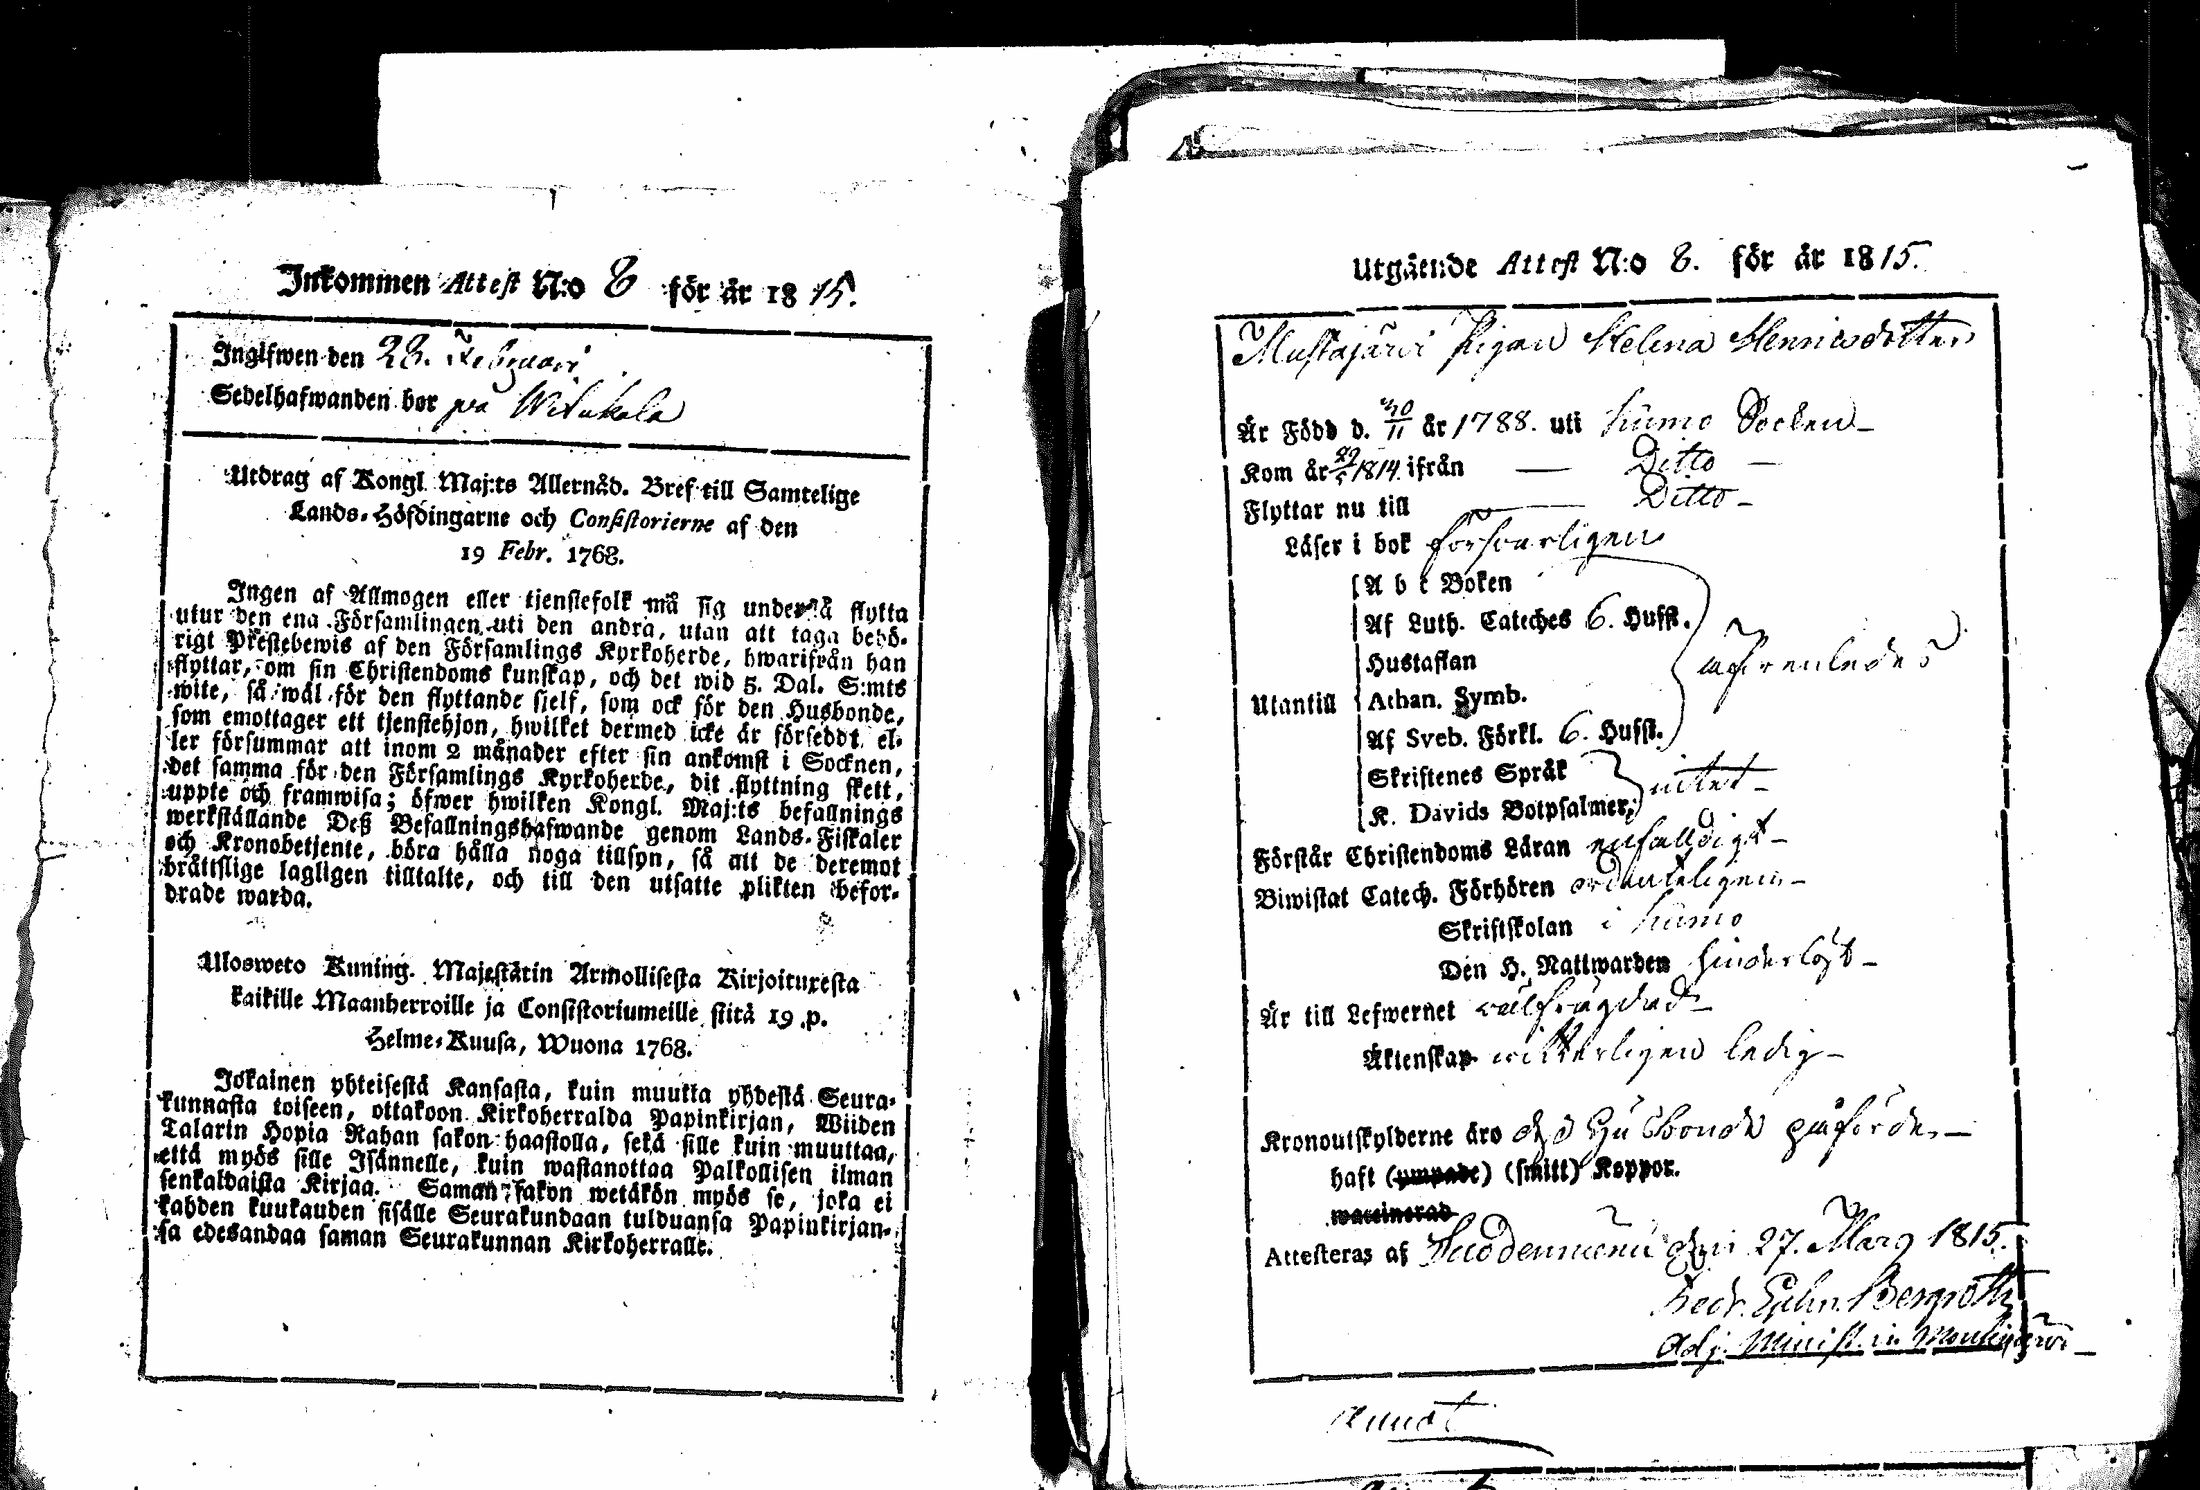 Inkommen Attest N:o 8 för år 1815.
Ingifwen den 28. Februari
Sedelhafwanden bor på Witikala
Utdrag af Kongl Maj:ts Allernåd. Bref till Samtelige
Lands-Höfdingarne och Consistorierne af den
19 Febr. 1768.
Ingen af Allmogen eller tjenstefolk må sig understå flytta
utur den ena Församlingen uti den andra, utan att taga behö-
rigt Prestebewis af den Församlings Kyrkoherde, hwarifrån han
flyttar, om sin Christendoms kunskap, och det wid 5. Dal. S:mts
wite, så wäl för den flyttande sjelf, som ock för den Husbonde,
som emottager ett tjenstehjon, hwilket dermed icke är försedt, el-
ler försummar att inom 2 månader efter sin ankomst i Socknen,
det samma för den Församlings Kyrkoherde, dit flyttning skett,
uppte och framwisa; öfwer hwilken Kongl. Maj:ts befallnings
werkställande Deß Befallningshafwande genom Lands-Fiskaler
och Kronobetjente, böra hålla noga tillsyn, så att de deremot
bråttslige lagligen tilltalte, och till den utsatte plikten befor-
drade warda.
Ulosweto Kuning. Majestätin Armollisesta Kirjoituxesta
kaikille Maanherroille ja Consistoriumeille siitä 19 p.
Helme-Kuusa, Wuona 1768.
Jokainen yhteisestä Kansasta, kuin muutta yhdestä Seura-
kunnasta toiseen, ottakoon Kirkoherralda Papinkirjan, Wiiden
Talarin Hopia Rahan sakon haastolla, sekä sille kuin muuttaa,
että myös sille Isännelle, kuin wastanottaa Palkollisen ilman
senkaldaista Kirjaa. Saman sakon wetäkön myös se, joka ei
kahden kuukauden sisälle Seurakundaan tulduansa Papinkirjan-
sa edesandaa saman Seurakunnan Kirkoherralle.
Utgående Attest N:o 8. för år 1815.
Mustajärvi Pigan Helena Henricsdotter
Är Född d. 30/11 år 1788. uti Kumo Socken
Kom år 29/5 1814. ifrån — Ditto —
Flyttar nu till — Ditto —
Läser i bok försvarligen
A b c Boken
Af Luth. Cateches 6. Hufst.
Hustaflan
Utantill Athan. Symb.
Af Sveb. Förkl. 6. Hufst.
Skriftenes Språk
intet —
K. Davids Botpsalmer,
Förstår Christendoms Läran enfalldigt —
Biwistat Catech. Förhören ordenteligen —
Skriftskolan i Kumo
Den H. Nattwarden hinderlöst —
Är till Lefwernet välfrägdad —
Äktenskap witterligen ledig —
Kronoutskylderne äro Husbonde påförde —
haft (ympade) (smitt) Koppor.
waccinerad
Attesteras af Suodenniemi den 27. Mars 1815.
Bergroth
Adj. Minist. in Mouhijärvi —